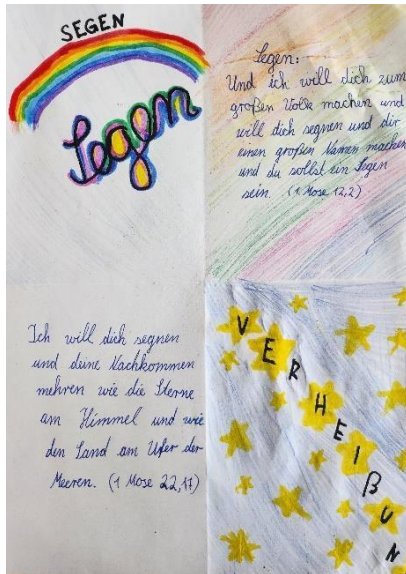 SEGEN
Segen
Segen:
Und ich will dich zum
großen Volke machen und
will dich segnen und dir
einen großen Namen machen
und du sollst ein Segen
sein. (1 Mose 12,2)
Ich will dich segnen
und deine Nachkommen
mehren wie die Sterne
am Himmel und wie
den Sand am Ufer der
Meeren. (1 Mose 22,17)
VERHEIßUN